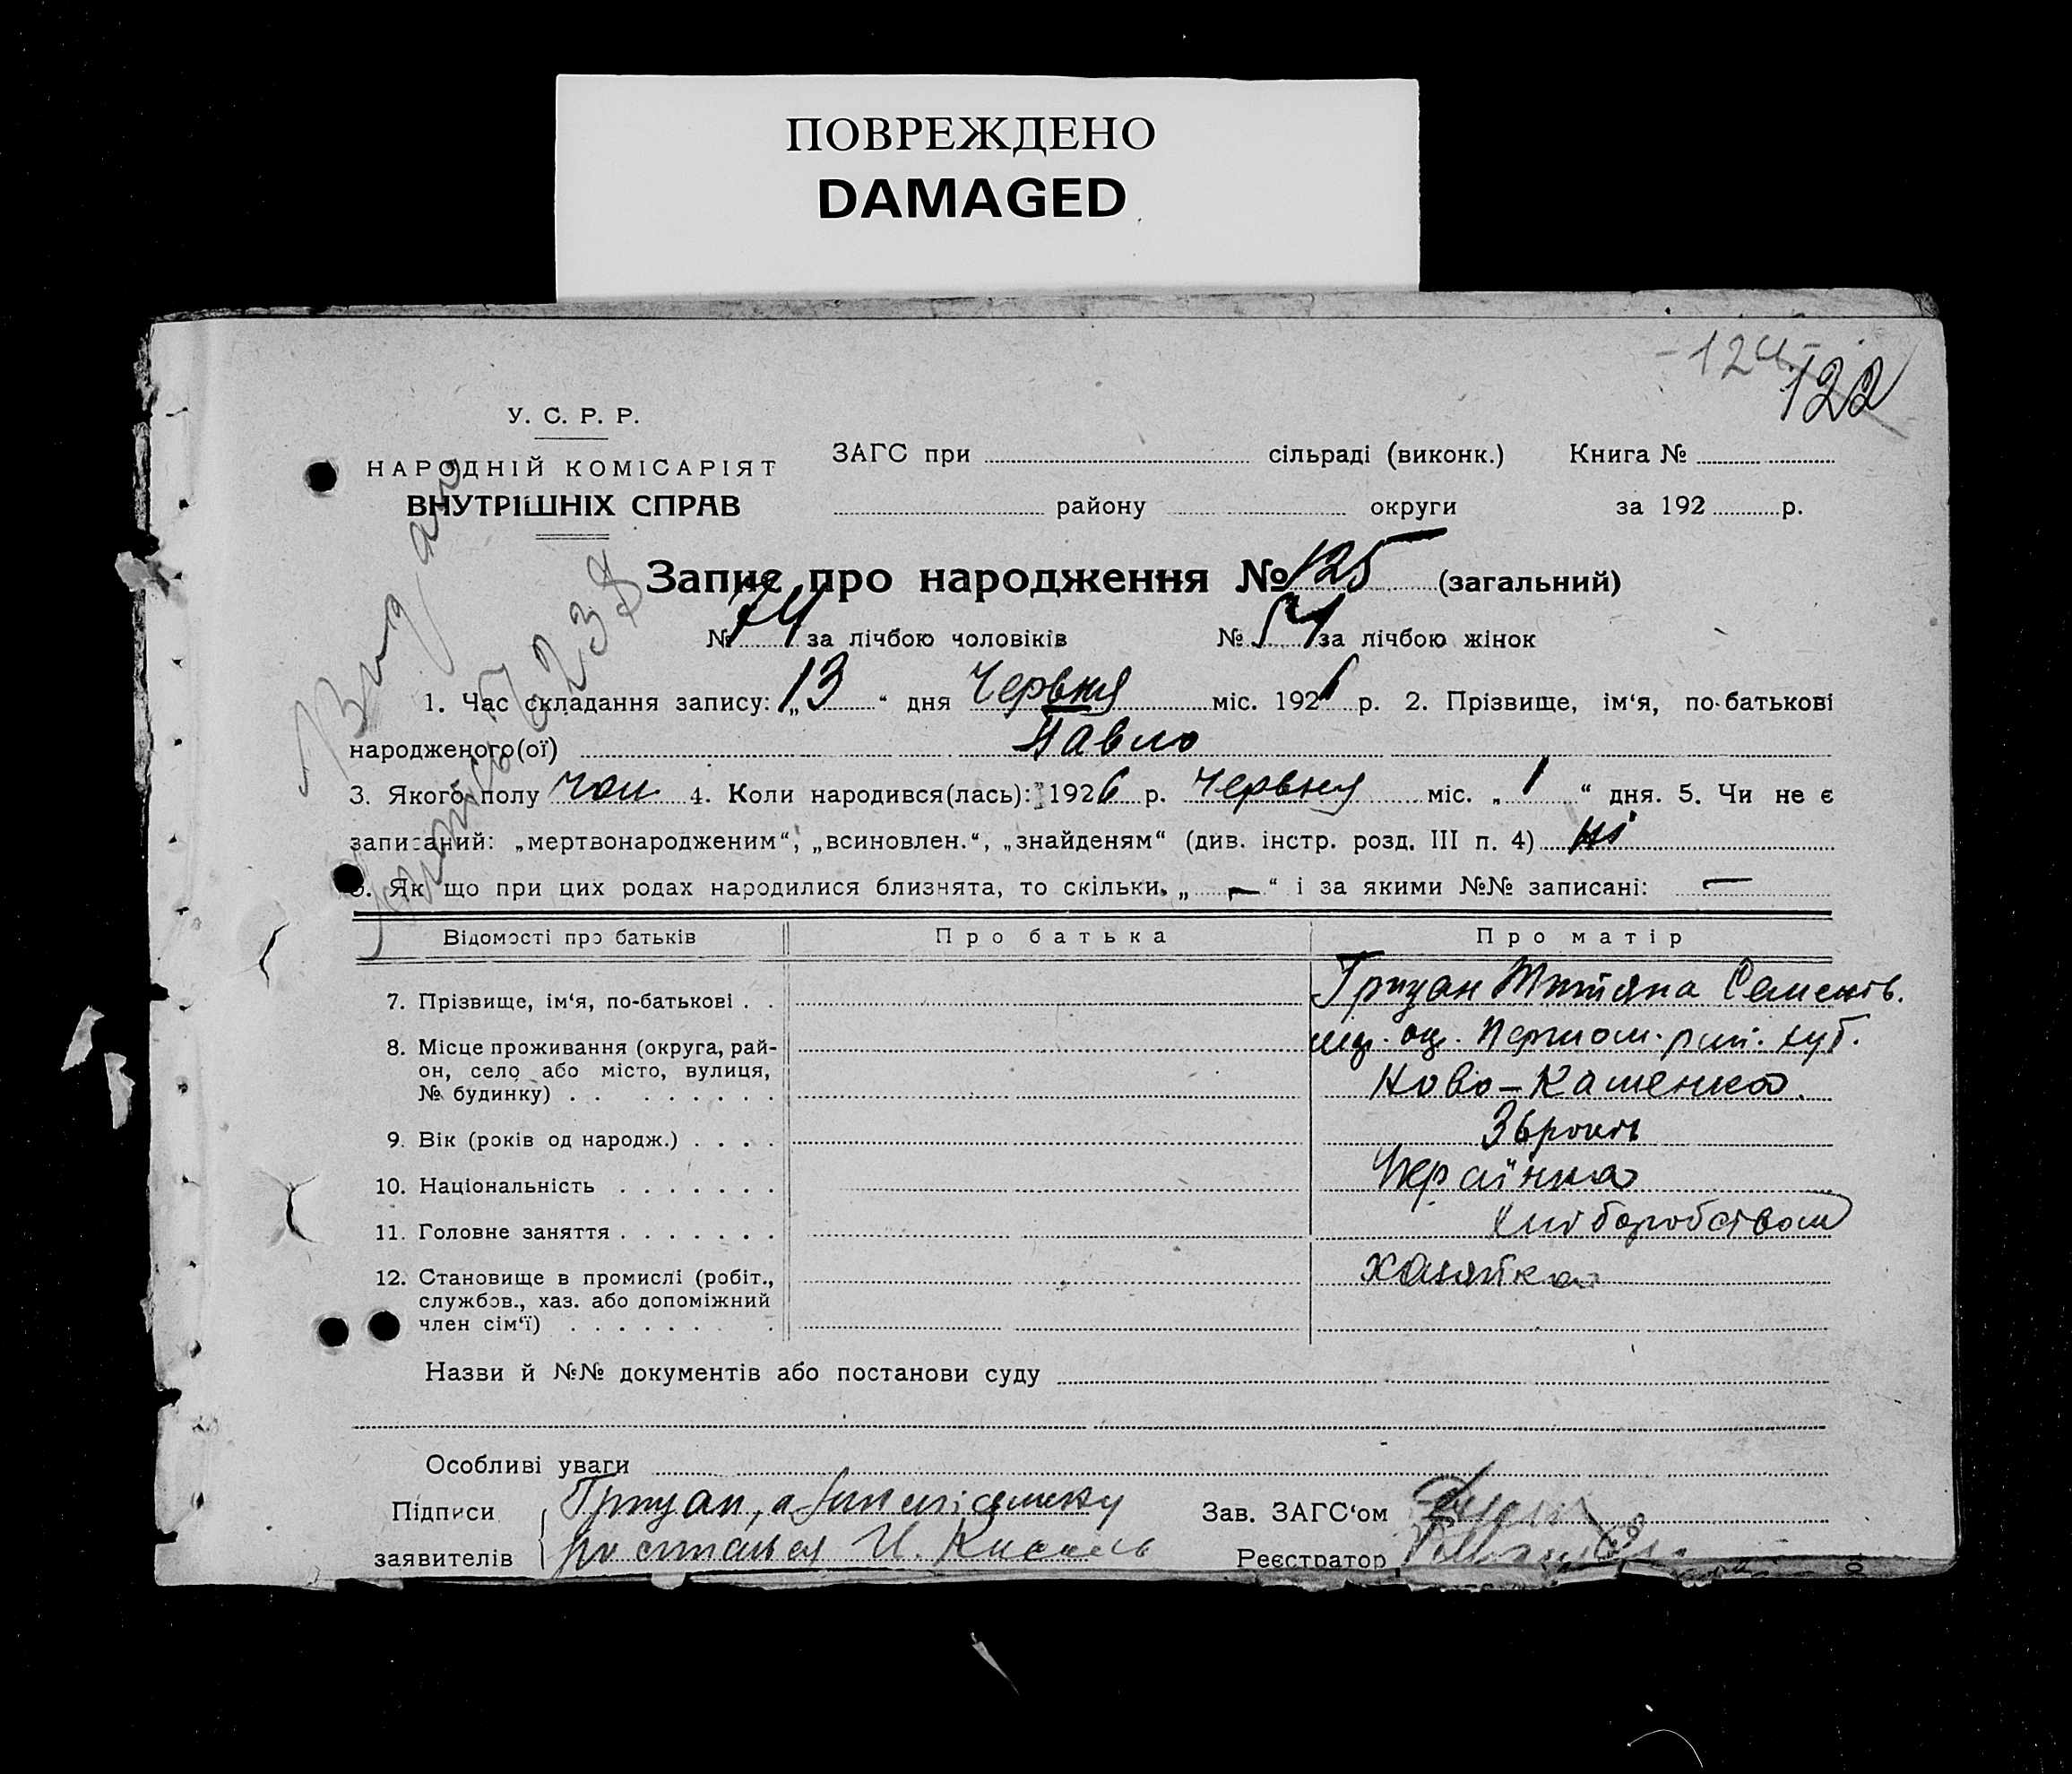 ПОВРЕЖДЕНО
DAMAGED
122
У. С. Р. Р.
НАРОДНІЙ КОМІСАРІЯТ
ВНУТРІШНІХ СПРАВ
ЗАГС при сільраді (виконк.) Книга №
району округи за 192 р.
Запис про народження № 125 (загальний)
№ 74 за лічбою чоловіків № 51 за лічбою жінок
1. Час складання запису: „13“ дня Червня міс. 1926 р. 2. Прізвище, ім‘я, по-батькові
народженого(ої) Павло
3. Якого полу чол 4. Коли народився(лась): 1926 р. Червня міс. „1“ дня. 5. Чи не є
записаний: „мертвонародженим“, „всиновлен.“, „знайденям“ (див. інстр. розд. III п. 4) ні
6. Як що при цих родах народилися близнята, то скільки „—“ і за якими №№ записані: —
Відомості про батьків Про батька Про матір
7. Прізвище, ім‘я, по-батькові . . Грицан Тетяна Семенів.
8. Місце проживання (округа, рай-
он, село або місто, вулиця,
№ будинку) . . . . . . . . Ново-Каменка.
9. Вік (років од народж.) . . . . 36 років
10. Національність . . . . . . . Українка
11. Головне заняття . . . . . . . хліборобством
12. Становище в промислі (робіт., хазяйка
службов., хаз. або допоміжний
член сім‘ї) . . . . . . .
Назви й №№ документів або постанови суду
Особливі уваги
Підписи Грицан, а Зав. ЗАГС‘ом
заявителів Реєстратор